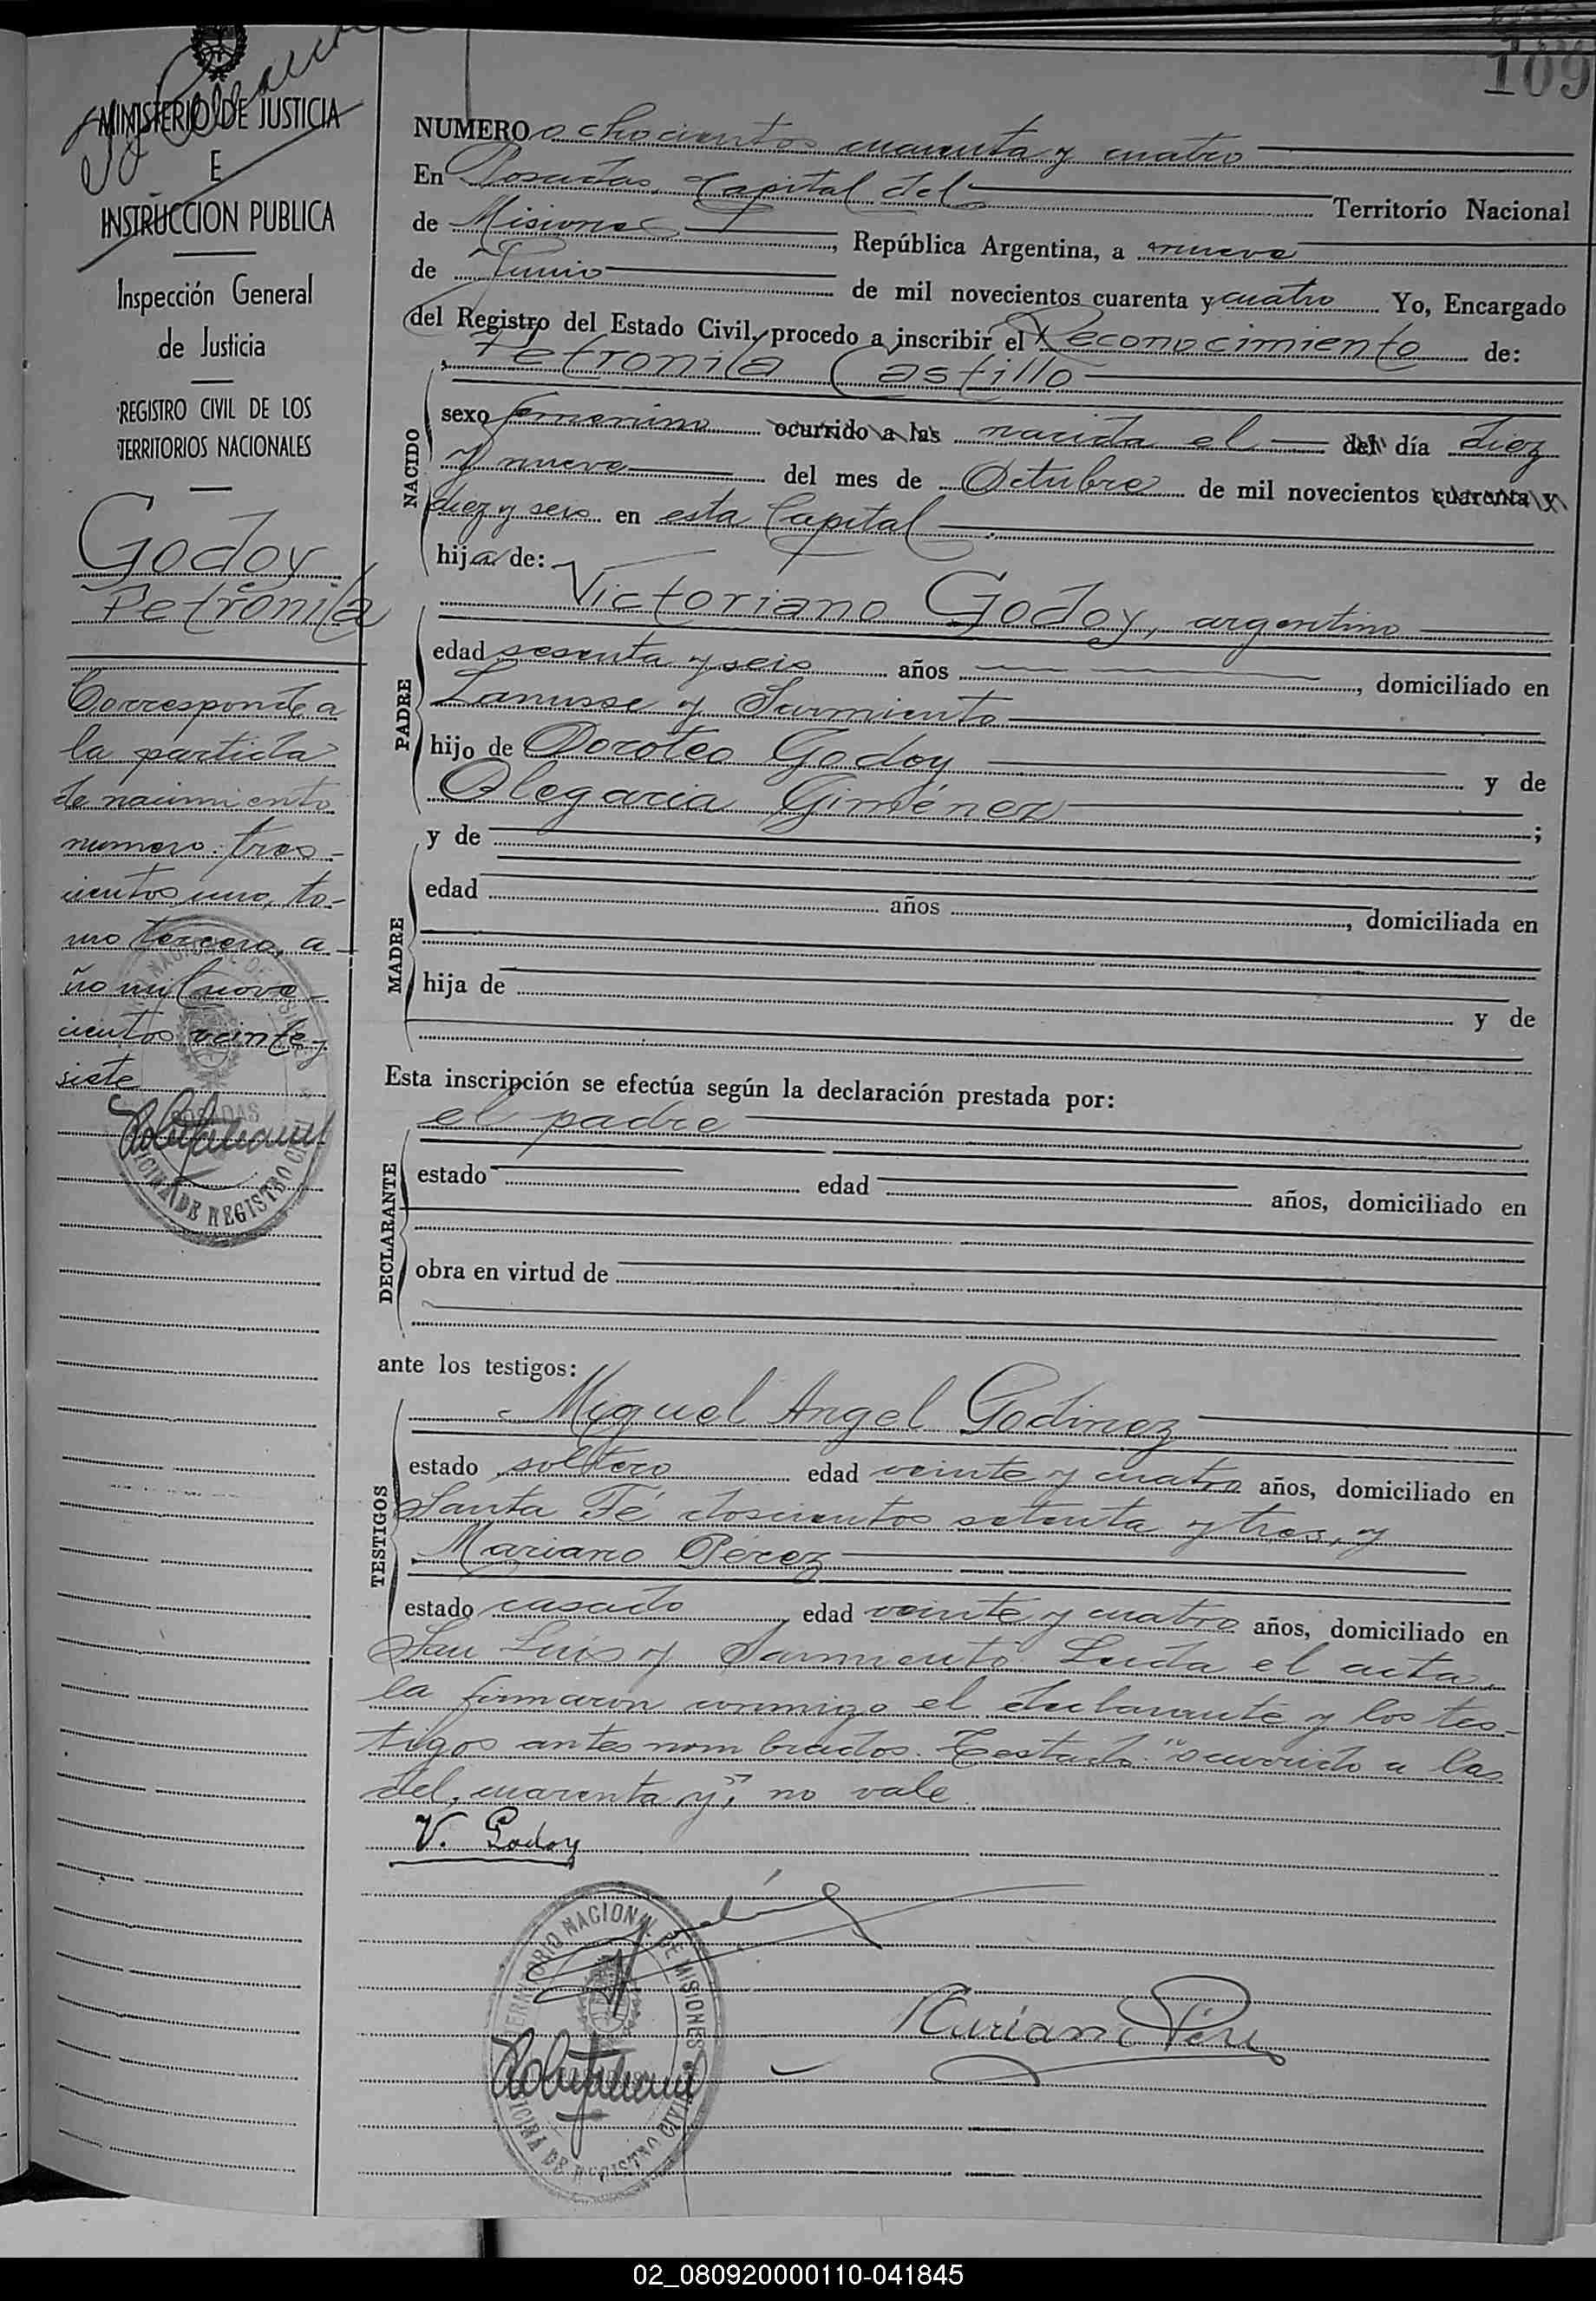 109
MINISTERIO DE JUSTICIA
E
INSTRUCCION PUBLICA
Inspección General
de Justicia
REGISTRO CIVIL DE LOS
TERRITORIOS NACIONALES
Godoy
Petronila
Corresponde a
la partida
de nacimiento
numero: tres-
cientos uno, to-
mo tercero, a-
ño mil nove-
cientos veinte y
siete
NUMERO ochocientos cuarenta y cuatro
En Posadas, Capital del Territorio Nacional
de Misiones, República Argentina, a nueve
de Junio de mil novecientos cuarenta y cuatro Yo, Encargado
del Registro del Estado Civil, procedo a inscribir el Reconocimiento de:
Petronila Castillo
NACIDO
sexo femenino ocurrido a las nacida el del día diez
y nueve del mes de Octubre de mil novecientos cuarenta y
diez y seis en esta Capital
hija de:
PADRE
Victoriano Godoy, argentino
edad sesenta y seis años, domiciliado en
Lanusse y Sarmiento
hijo de Doroteo Godoy y de
Olegaria Giménez;
MADRE
y de
edad años, domiciliada en
hija de y de
Esta inscripción se efectúa según la declaración prestada por:
DECLARANTE
el padre
estado edad años, domiciliado en
obra en virtud de
ante los testigos:
TESTIGOS
Miguel Angel Godinez
estado soltero edad veinte y cuatro años, domiciliado en
Santa Fé doscientos setenta y tres, y
Mariano Pérez
estado casado edad veinte y cuatro años, domiciliado en
San Luis y Sarmiento. Leida el acta,
la firmaron conmigo el declarante y los tes-
tigos antes nombrados. Testado: "ocurrido a las
del, cuarenta y", no vale
V. Godoy
TERRITORIO NACIONAL DE MISIONES
OFICINA DE REGISTRO CIVIL
Mariano Pérez
02_080920000110-041845